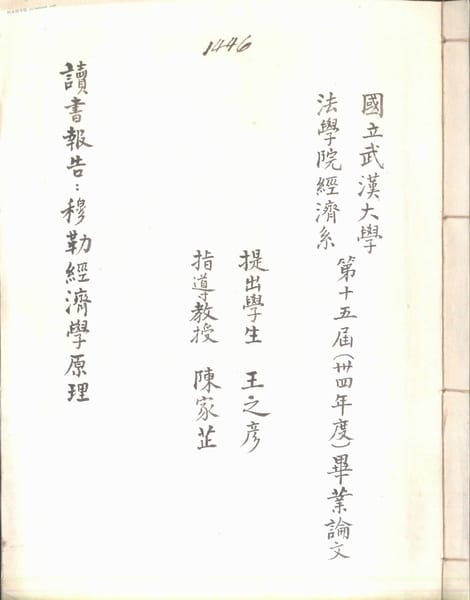 1446
國立武漢大學
法學院經濟系
第十五屆(卅四年度)畢業論文
提出學生 王之彥
指導教授 陳家芷
讀書報告：穆勒經濟學原理